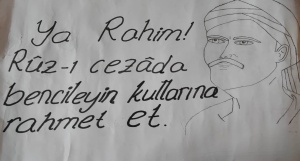 Ya Rahim!
Rûz-ı cezâda
bencileyin kullarına
rahmet et.